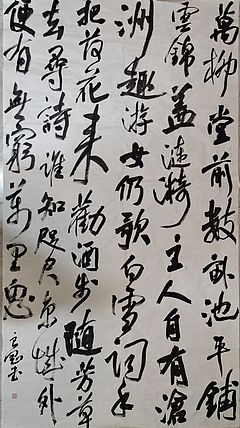 萬柳堂前數畝池平鋪
雲錦蓋漣漪主人自有滄
洲趣游女仍歌白雪詞手
把荷花来勸酒步随芳草
去尋詩誰知咫尺京城外
便有無窮萬里思